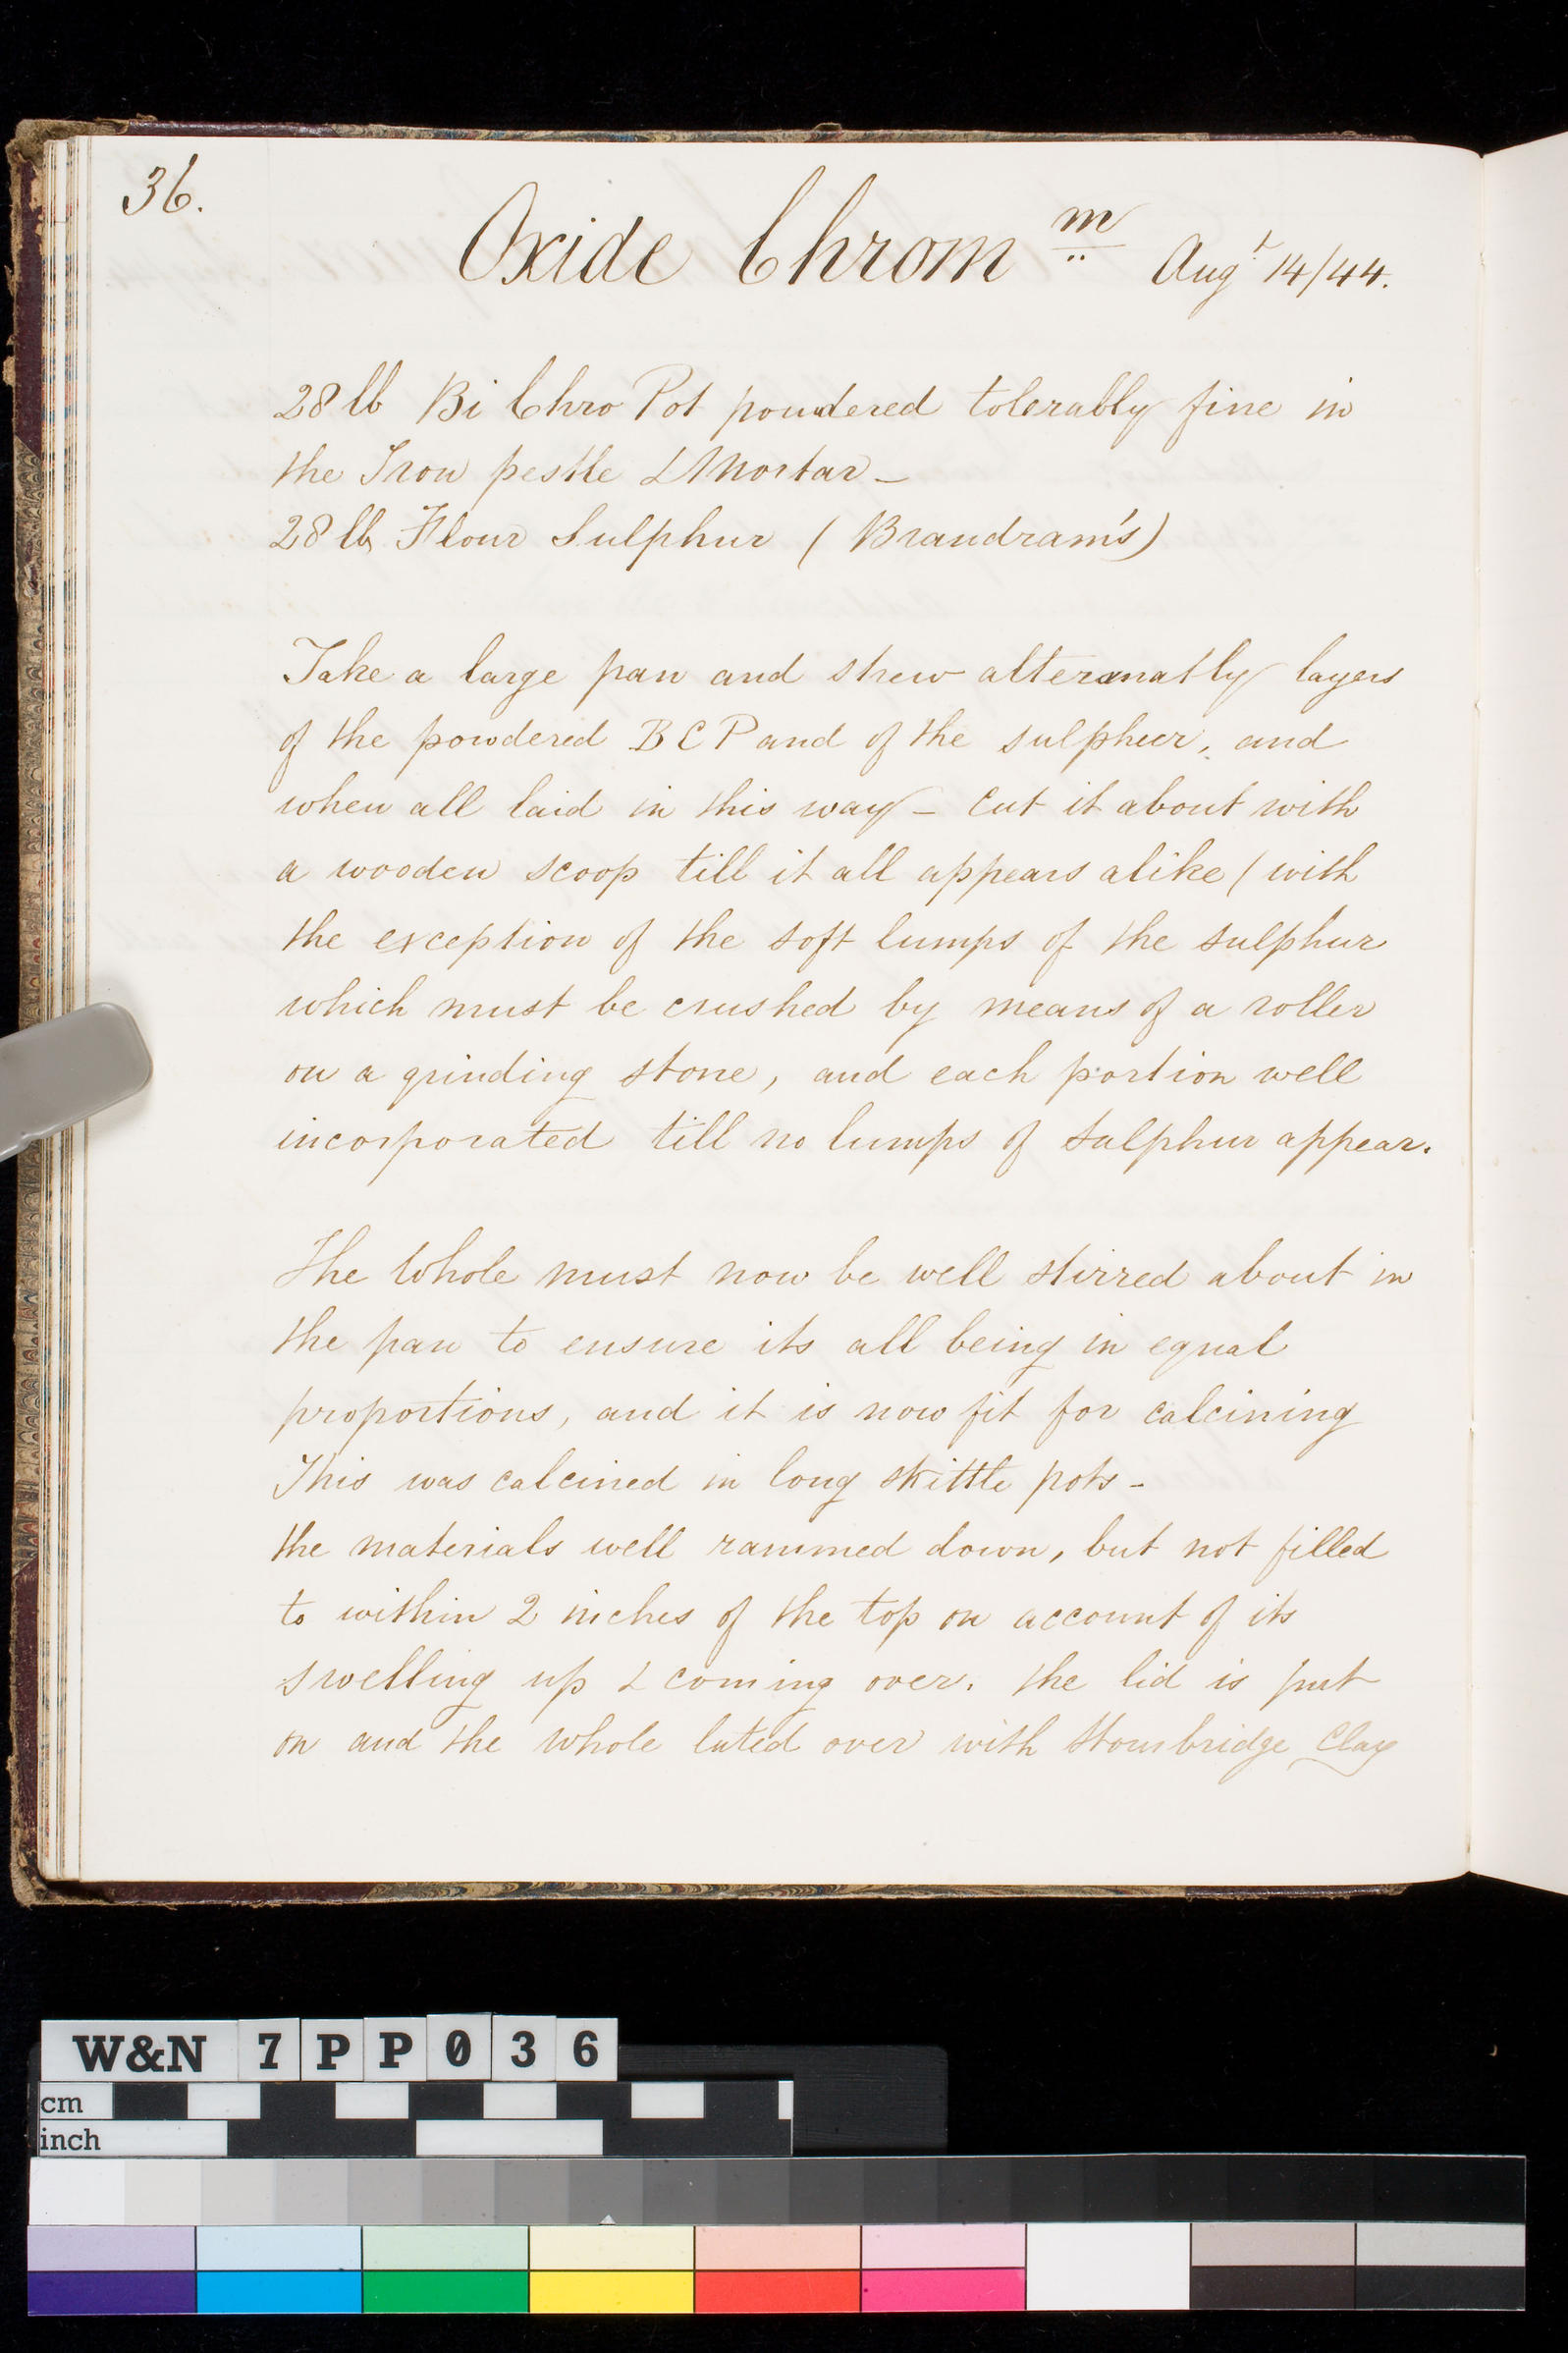 36.
Oxide Chrom m Augt 14/44.
28 lb Bi Chro Pot powdered tolerably fine in
the Iron pestle & Mortar –
28 lb Flour Sulphur ( Brandram's)
Take a large pan and strew alternatly layers
of the powdered B C P and of the sulphur, and
when all laid in this way – cut it about with
a wooden scoop till it all appears alike ( with
the exception of the soft lumps of the sulphur
which must be crushed by means of a roller
on a grinding stone, and each portion well
incorporated till no lumps of sulphur appear.
The whole must now be well stirred about in
the pan to ensure its all being in equal
proportions, and it is now fit for calcining
This was calcined in long skittle pots –
the materials well rammed down, but not filled
to within 2 inches of the top on account of its
swelling up & coming over. the lid is put
on and the whole luted over with Stourbridge Clay
W&N 7PP036
cm
inch